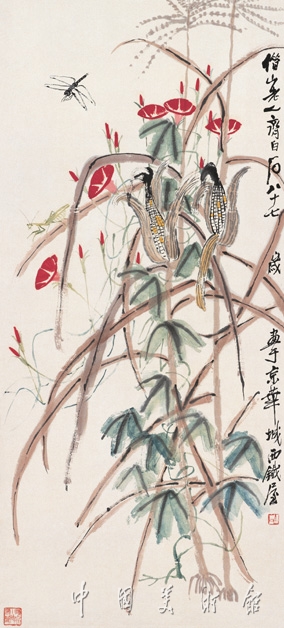 借山老人齊白石八十七歲畫于京華城西鐵屋
中國美術館